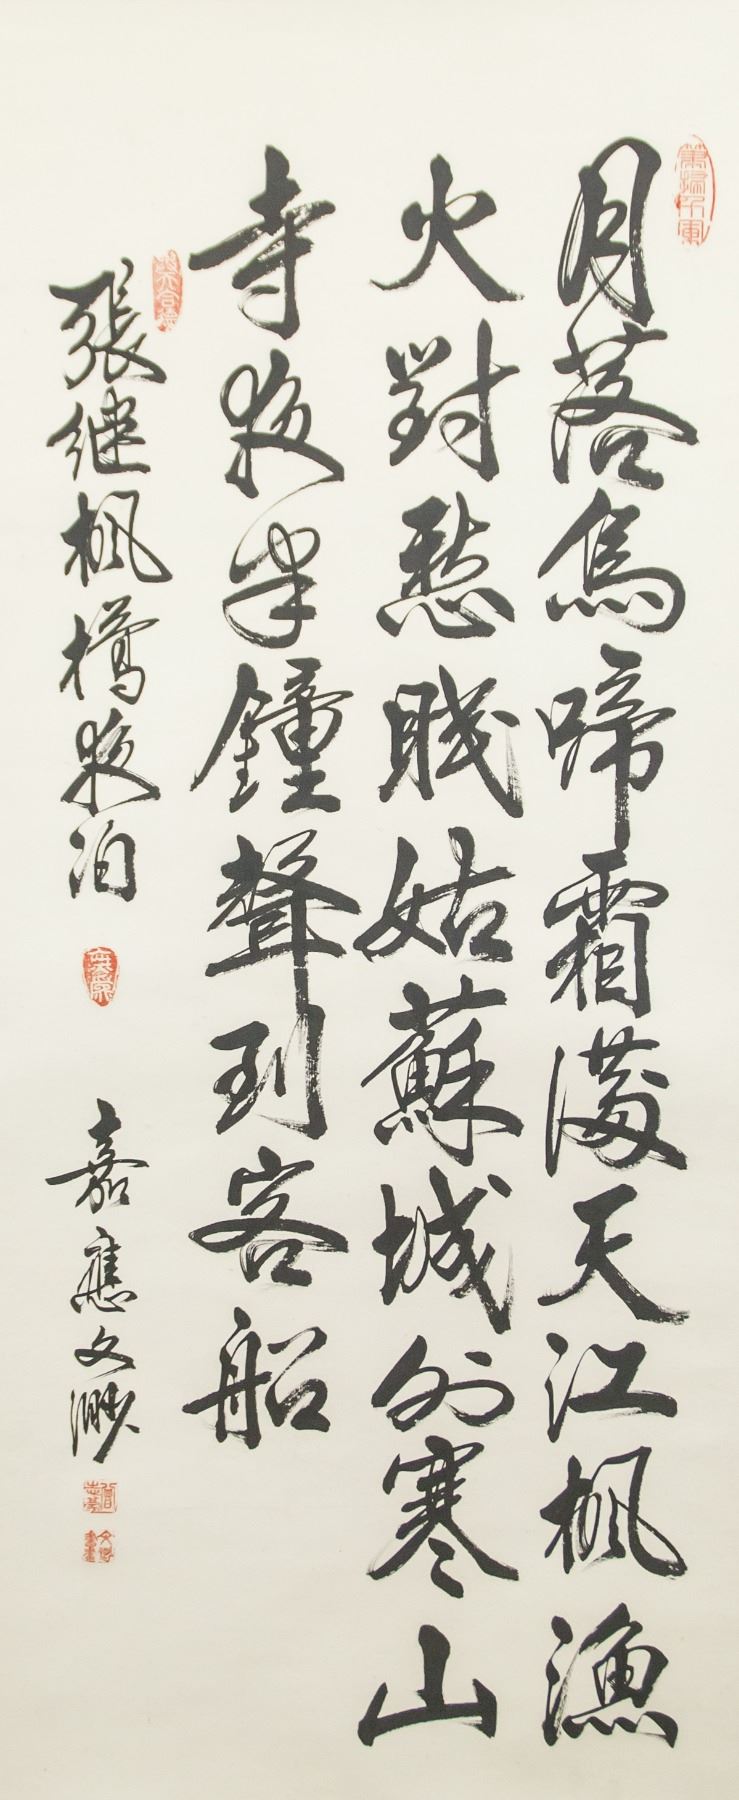 月落烏啼霜滿天江楓漁
火對愁眠姑蘇城外寒山
寺夜半鐘聲到客船
張継楓橋夜泊
嘉應文渺